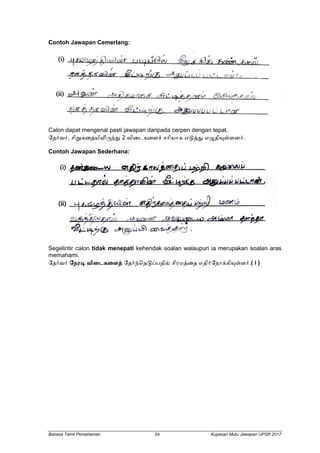 Contoh Jawapan Cemerlang:
(i) புகழ்முத்தியின் படிப்பில் வீழ்ச்சிக் கண்டதால்
தாத்தாவின் வீட்டிற்கு அனுப்பப் பட்டாள்.
(ii) அவன் அதிகமாகச் சுட்டித்தனம் செய்ததால்
தாத்தாவின் வீட்டிற்கு அனுப்பப்பட்டான்
Calon dapat mengenal pasti jawapan daripada cerpen dengan tepat.
தேர்வர், சிறுகதையிலிருந்து 2 விடைகளைச் சரியாக எடுத்து எழுதியுள்ளனர்.
Contoh Jawapan Sederhana:
(i) எதிர்காலத்தைப் பற்றி கவலைப்
பட்டதால் தாத்தாவின் வீட்டிற்கு அனுப்பப்பட்டான்.
(ii) எதிர்காலத்தைப்பற்றி மனம்
அவனை அவனுடைய அம்மா தாத்தா
வீட்டிற்கு அனுப்பி வைத்தார்.
Segelintir calon tidak menepati kehendak soalan walaupun ia merupakan soalan aras
memahami.
தேர்வர் நேரடி விடைகளைத் தேர்ந்தெடுப்பதில் சிரமத்தை எதிர்நோக்கியுள்ளர்.( i )
Bahasa Tamil Pemahaman 24 Kupasan Mutu Jawapan UPSR 2017